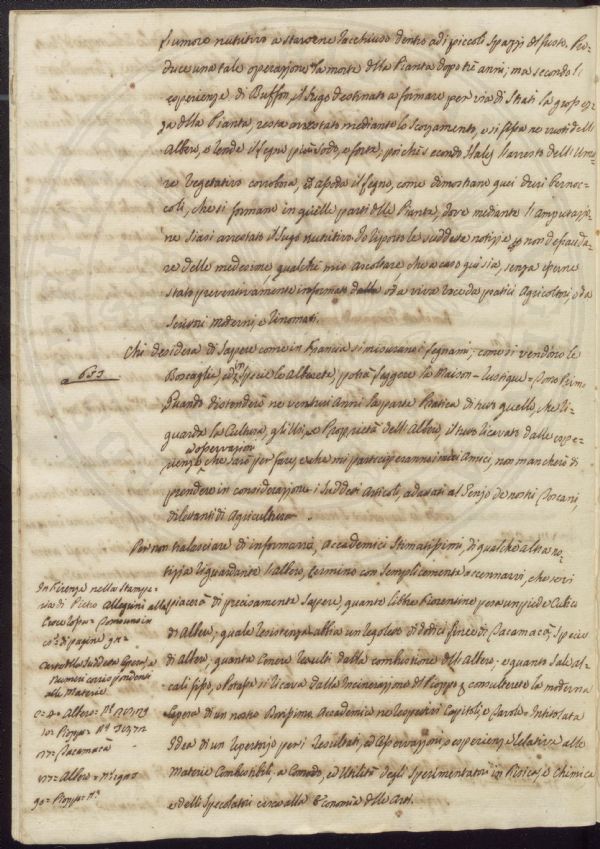 l'umore nutritivo a starsene racchiuso dentro ad i piccoli spazzj del fusto. Pro-
duce una tale operazione la morte della Pianta dopo tre anni; ma secondo l'
esperienze di Buffon, il sugo destinato a formare per via di strati la gros-
za della Pianta, resta arrestato mediante lo scorzamento, e si fissa ne vuoti dell'
Albero, e rende il legno più sodo, e forte; poichè secondo Hales l'arresto dell' Umo-
re vegetativo corrobora, ed assoda il legno, come dimostrano quei duri Bernoc-
coli, che si formano in quelle parti della Pianta, dove mediante l'amputazio-
ne siasi arrestato il sugo nutritivo. Io riporto le suddette notizie per non defrauda-
re delle medesime, qualche mio ascoltare, che a caso quì sia, senza esserne
stato preventivamente informato dalla viva voce da pratici Agricoltori, o da
scrittori moderni, e rinomati.
Chi desidera di sapere come in Francia si misurano i legnami; come si vendono le
Boscaglie, ed le Alberete, potrà leggere la Maison = Rustique = Tomo Primo
Quando distenderò ne venturi Anni la parte Pratica di tutto quello, che ri-
guarda la Cultura, gli Usi, e Proprietà dell' Albero, il tutto ricavato dalle espe-
e osservazioni
rienze, che sarò per fare, e che mi parteciperanno i miei Amici, non mancherò di
prendere in considerazione i suddetti Articoli, adattati al Genio de nostri Toscani,
dilettanti di Agricultura.
Per non tralasciare di informarvi, Accademici Stimatissimi, di qualche altra no-
tizia riguardante l'Albero, termino con semplicemente accennarvi, che se vi
piacerà di precisamente sapere, quante libbre Fiorentine pesa un piede Cubico
di Albero; quale resistenza abbia un regoletto di dodici lince di Tacamacà, specie
di Albero; quanta Cenere resulti dalla combustione dell' Albero; e quanto sale al-
cali fisso, e Potassa si ricava dalla Incinerazione di Pioppo, consulterete la moderna
Opera di un nostro Accademico ne respettivi Capitoli, e Tavole = Intitolata
Idea di un Repertorio per i Resultati, ed Osservazioni, o esperienze relative alle
Materie Combustibili, a Comodo, ed Utilità degli Sperimentatori in Fisica, e Chimica
e delli Speculatori circa alla Economia delle Arti.
In Firenze nella Stampe-
ria di Pietro Allegrini alla
Croce Rossa = Tomo uno in
di pagine
Suddetta Opera, a
Numeri corrispondenti
alle Materie.
Albero =
Pioppo =
Tacamacà
Albero =
Pioppo =